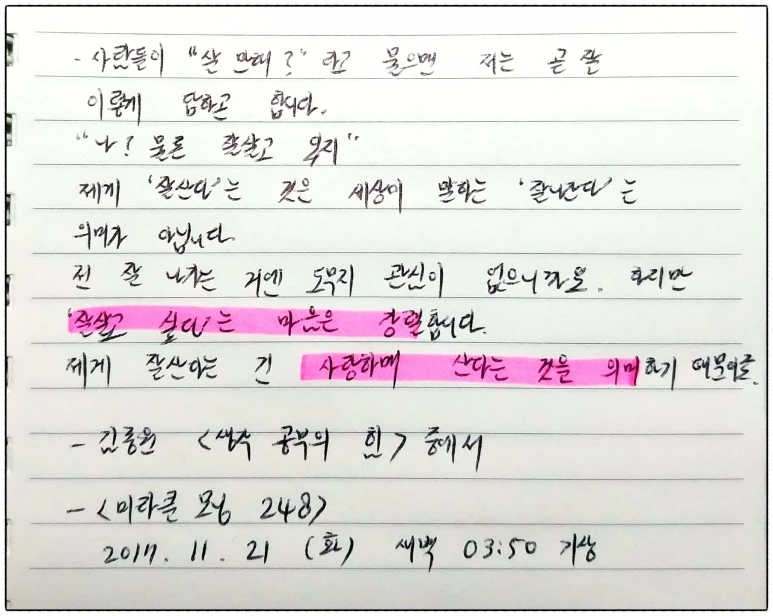 - 사람들이 "살 만해?"라고 물으면 저는 곧잘
이렇게 답하곤 합니다.
"나? 물론 잘살고 있지"
제게 '잘산다'는 것은 세상이 말하는 '잘나간다'는
의미가 아닙니다.
전 잘 나가는 거엔 도무지 관심이 없으니까요. 하지만
'잘살고 싶다'는 마음은 강렬합니다.
제게 잘산다는 건 사랑하며 산다는 것을 의미하기 때문이죠.
- 김종원 <생각 공부의 힘> 중에서
- <미라클 모닝 248>
2017. 11. 21 (화) 새벽 03:50 기상